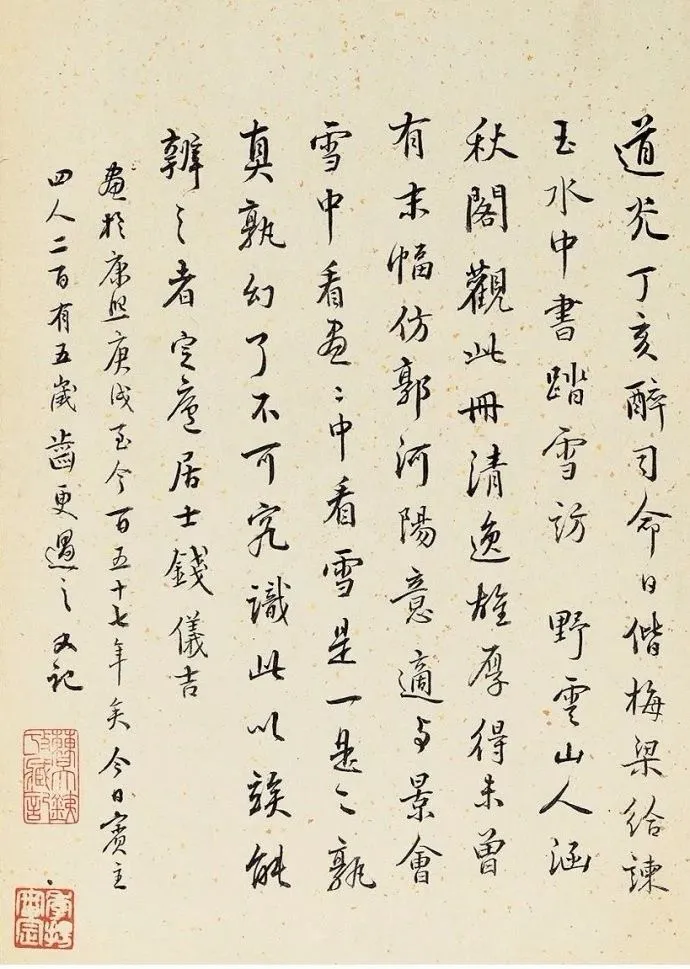 道光丁亥醉司命日偕梅梁給諫
玉水中書踏雪訪　野雲山人涵
秋閣觀此冊清逸雄厚得未曾
有末幅仿郭河陽意適与景會
雪中看畫〻中看雪是一是二孰
真孰幻了不可究識此以竢能
辨之者定廬居士錢儀吉
畫於康熙庚戌至今百五十七年矣今日賓主
四人二百有五歲齒更遇之又記